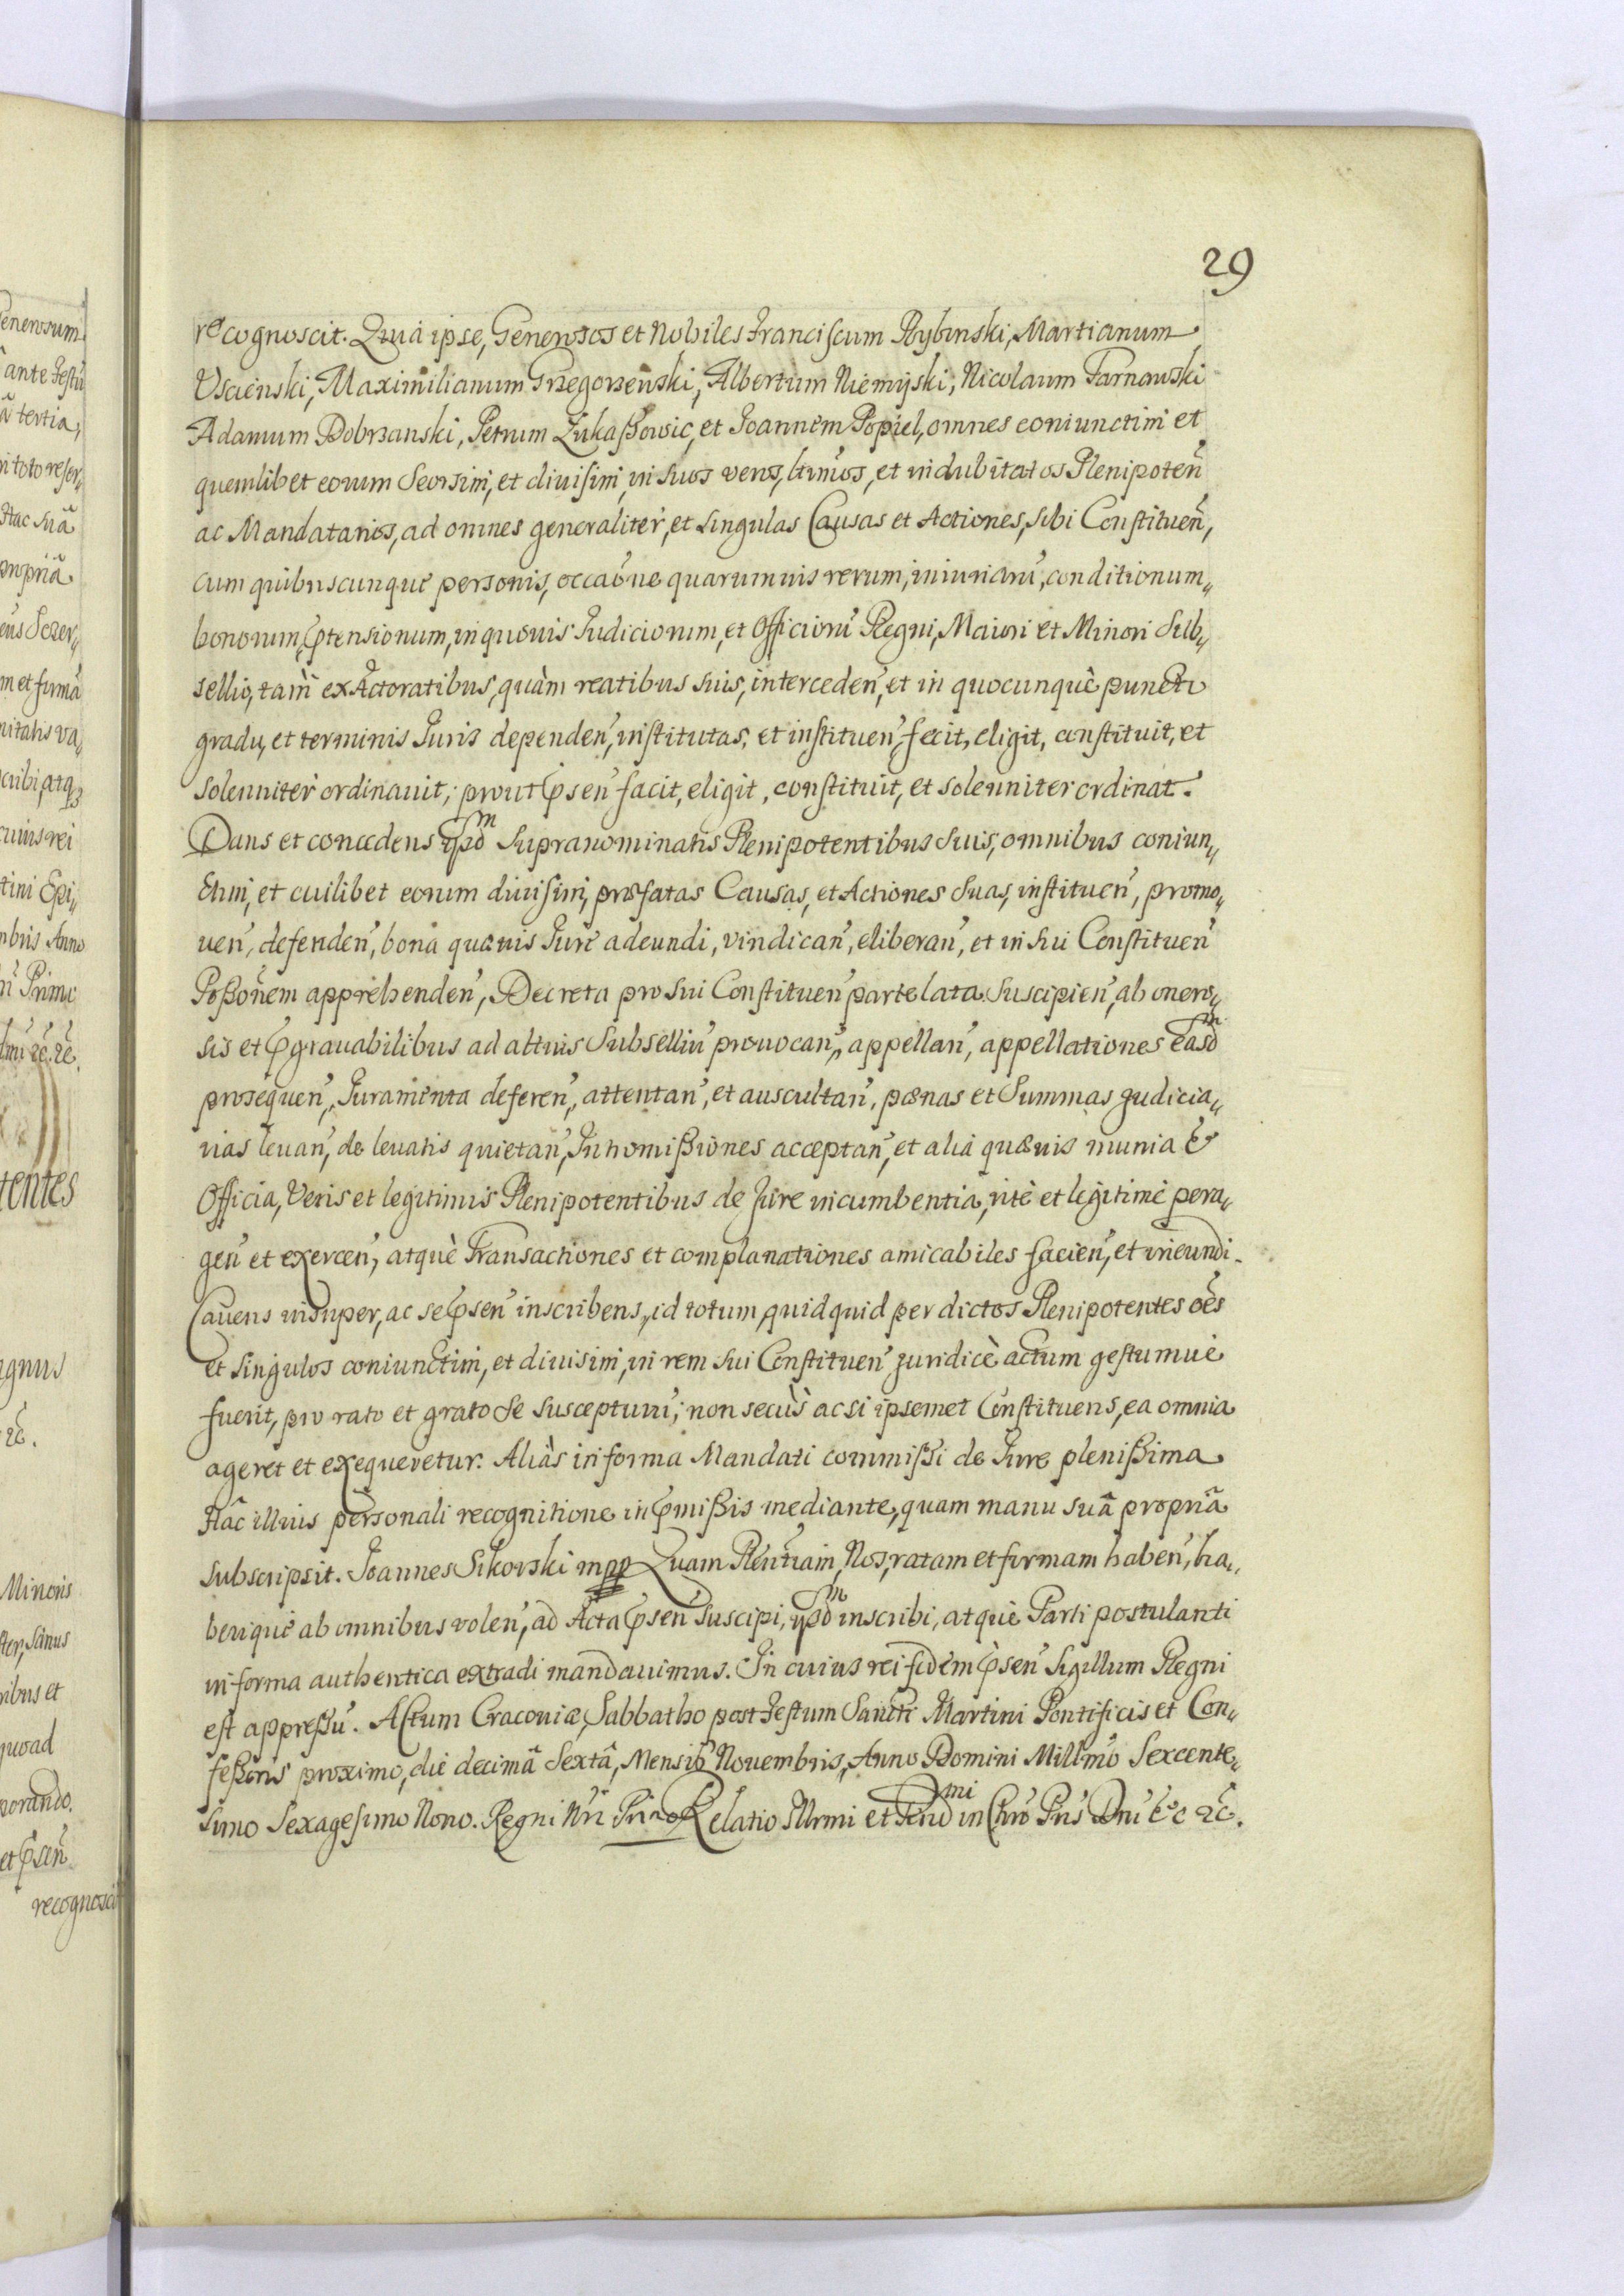 29
recognoscit. Quia ipse, Generosos et Nobiles Franciscum Rybinski, Martianum
Uscienski, Maximilianum Grzegorzewski, Albertum Niemyski, Nicolaum Tarnowski
Adamum Dobrzanski, Petrum Łukaßowic, et Joannem Popiel, omnes coniunctim et
quemlibet eorum Seorsim, et divisim, in suos veros, ltimos, et indubitatos Plenipoten̄
ac Mandatarios, ad omnes generaliter, et singulas Causas et Actiones, sibi Constituen̄,
cum quibuscunque personis, occaōne quarumuis rerum, iniuriarū, conditionum„
bonorum, p̄tensionum, in quouis Judiciorum, et Officiorū Regni, Maiori et Minori Sub„
sellio, tam ex Actoratibus, quàm reatibus suis, interceden̄, et in quocunquè puncto
gradu, et terminis Juris dependen̄, institutas, et instituen̄, fecit, eligit, constituit, et
solenniter ordinauit, prout p̄sen̄ facit, eligit, constituit, et solenniter ordinat.
Dans et concedens ijsdm Supranominatis Plenipotentibus suis, omnibus coniun„
ctim, et cuilibet eorum diuisim, præfatas Causas, et Actiones suas, instituen̄, promo„
uen̄, defenden̄, bona quæuis Jurè adeundi, vindican̄, eliberan̄, et in sui Constituen̄
Poßonem apprehenden̄, Decreta pro sui Constituen̄ parte lata suscipien̄, ab onero„
sis et p̄grauabilibus ad altius Subselliū prouocan̄, appellan̄, appellationes easdm
prosequen̄, Juramenta deferen̄, attentan̄, et auscultan̄, pœnas et Summas judicia„
rias leuan̄, de leuatis quietan̄, Intromißiones acceptan̄, et alia quæuis munia &
Officia, Veris et legitimis Plenipotentibus de Jure incumbentia, ritè et legitimè pera„
gen̄ et exercen̄, atquè Transactiones et complanationes amicabiles facien̄, et ineundi.
Cauens insuper, ac se p̄sen̄ inscribens, id totum, quidquid per dictos Plenipotentes oēs
et singulos coniunctim, et diuisim, in rem sui Constituen̄ juridicè actum gestumuè
fuerit, pro rato et grato se suscepturū, non secùs ac si ipsemet Constituens, ea omnia
ageret et exequeretur. Aliàs in forma Mandati commißi de Jure plenißima
Hâc illius personali recognitione in p̄mißis mediante, quam manu suâ propriâ
subscripsit. Joannes Sikorski mpp Quam Plentiam, Nos, ratam et firmam haben̄, ha„
beriquè ab omnibus volen̄, ad Acta p̄sen̄ suscipi, ijsdm inscribi, atquè Parti postulanti
in forma authentica extradi mandauimus. In cuius rei fidem p̄sen̄ Sigillum Regni
est appreßū. Actum Cracoviæ, Sabbatho post Festum Sancti Martini Pontificis et Con„
feßoris proximo, die decimâ Sextâ, Mensis Nouembris, Anno Domini Millmō Sexcente„
simo Sexagesimo Nono. Regni Nri Primo Relatio Illrmi et Rendmi in Chrō Pris Dni &c &c.